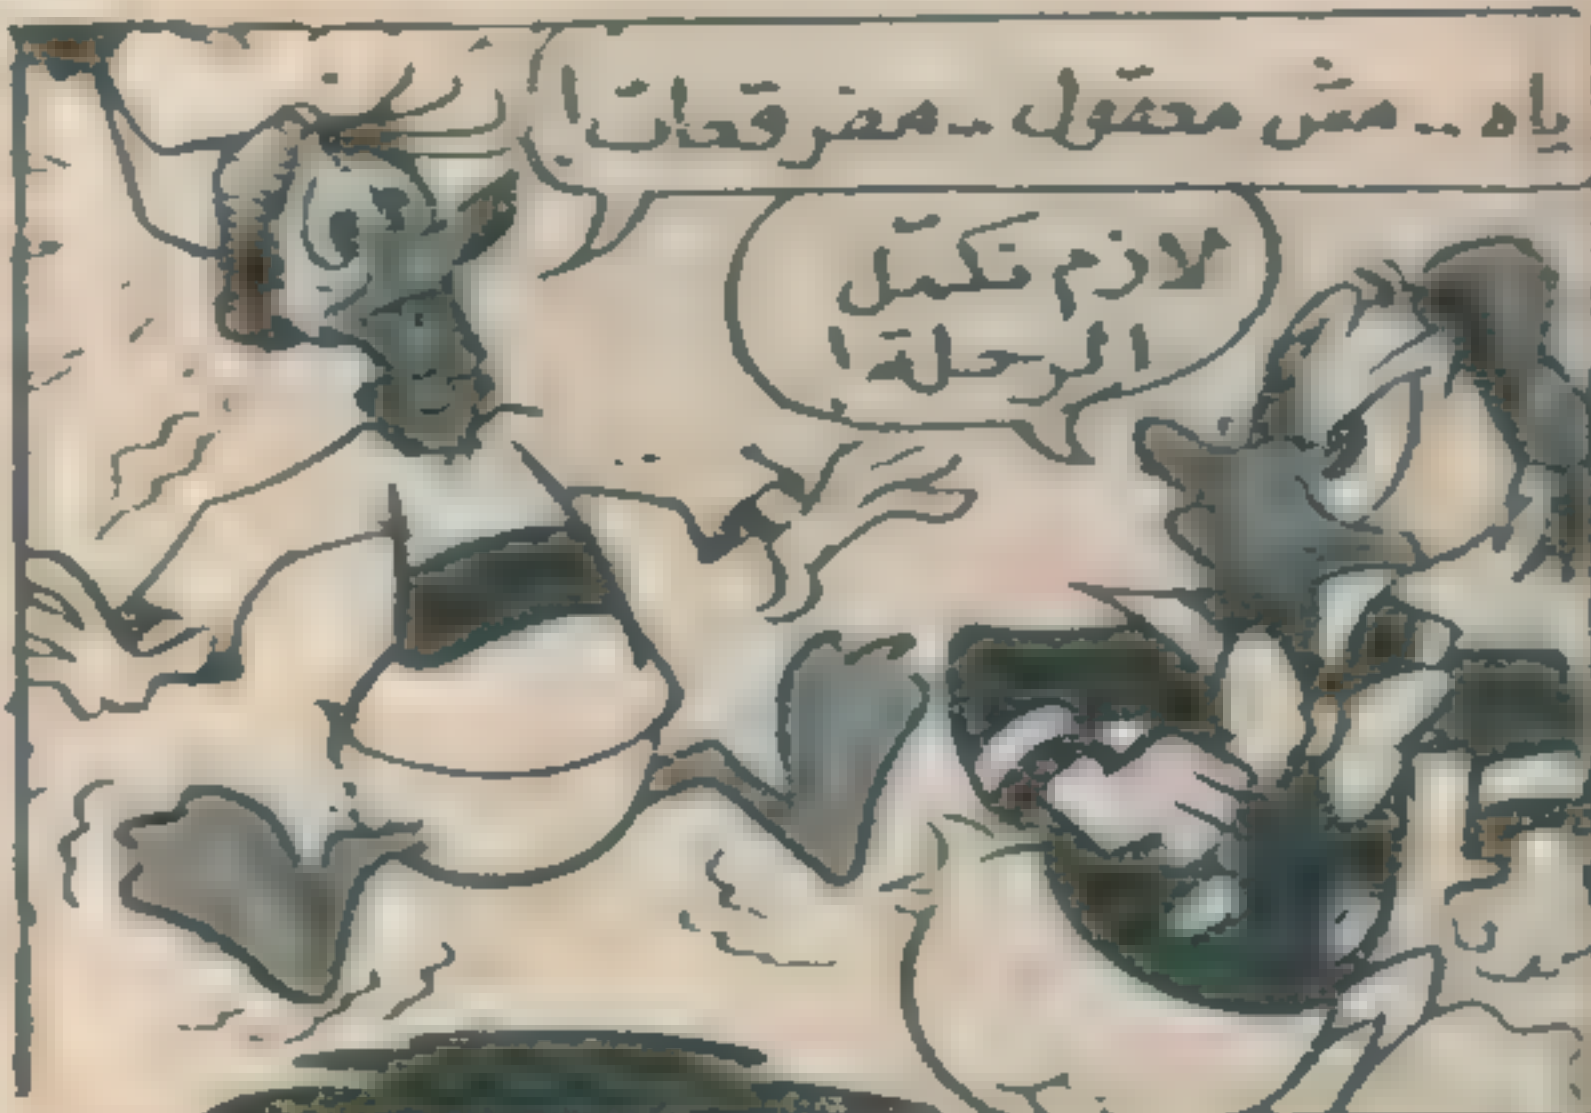 ياه .. مش معقول .. مفرقعات!
لازم نكمل
الرحلة!